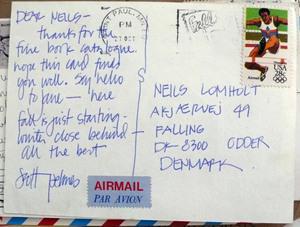 DEAR NEILS—
thanks for the
fine book catalogue.
hope this card finds
you well. Say hello
to Jane — here
fall is just starting—
winter close behind—
all the best
Scott Helmes
AIRMAIL
PAR AVION
PAUL
PM
USA
28c
NEILS LOMHOLT
AKJÆRVEJ 49
FALLING
DK-8300 ODDER
DENMARK.